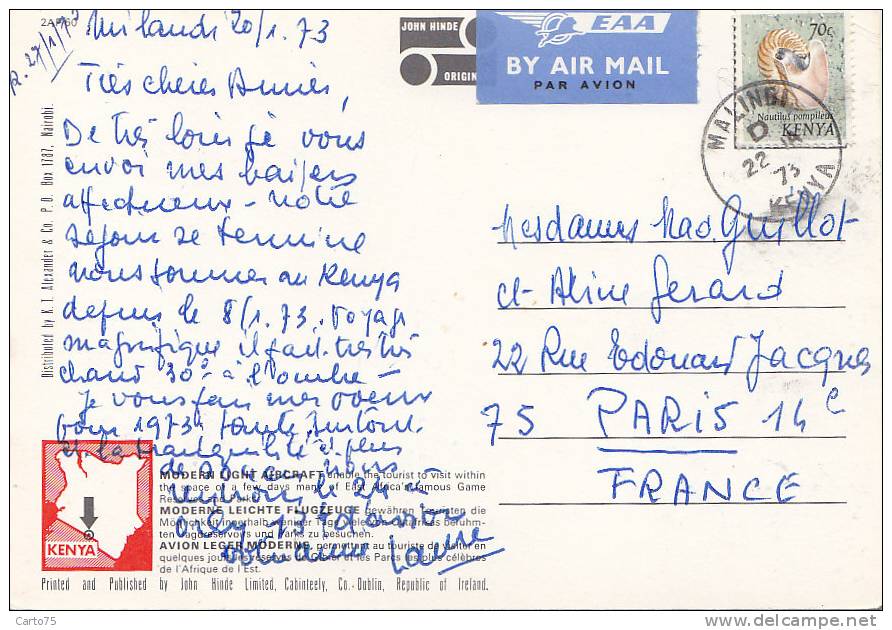 2AF/60
R. 27/1/73
Milandi 20/1.73
Très chères Amies,
De très loin je vous
envoi mes baisers
affectueux - notre
séjour se termine
nous sommes au Kenya
depuis le 8/1.73. Voyage
magnifique il fait très très
chaud 30° à l'ombre -
je vous fais mes voeux
pour 1973 santé surtout
et la tranquilité à plus
de nous
le 24 à
JOHN HINDE
ORIGIN
EAA
BY AIR MAIL
PAR AVION
70c
Nautilus pompileus
KENYA
MALINDI
D
22
73
KENYA
Mesdames Mad. Guillot
et Aline Gerard
22 Rue Edouard Jacques
75 PARIS 14e
FRANCE
Distributed by K. T. Alexander & Co. P.O. Box 1787, Nairobi.
KENYA
MODERN LIGHT AIRCRAFT enable the tourist to visit within
the space of a few days many of East Africa's famous Game
Reserves and Parks.
MODERNE LEICHTE FLUGZEUGE gewähren Touristen die
Möglichkeit innerhalb weniger Tage viele von Ostafrikas berühm-
ten Jagdreservoirs und Parks zu besuchen.
AVION LEGER MODERNE, permettant au touriste de visiter en
quelques jours les réserves de Gibier et les Parcs les plus célèbres
de l'Afrique de l'Est.
Printed and Published by John Hinde Limited, Cabinteely, Co. Dublin, Republic of Ireland.
Carto75
delcampe.net